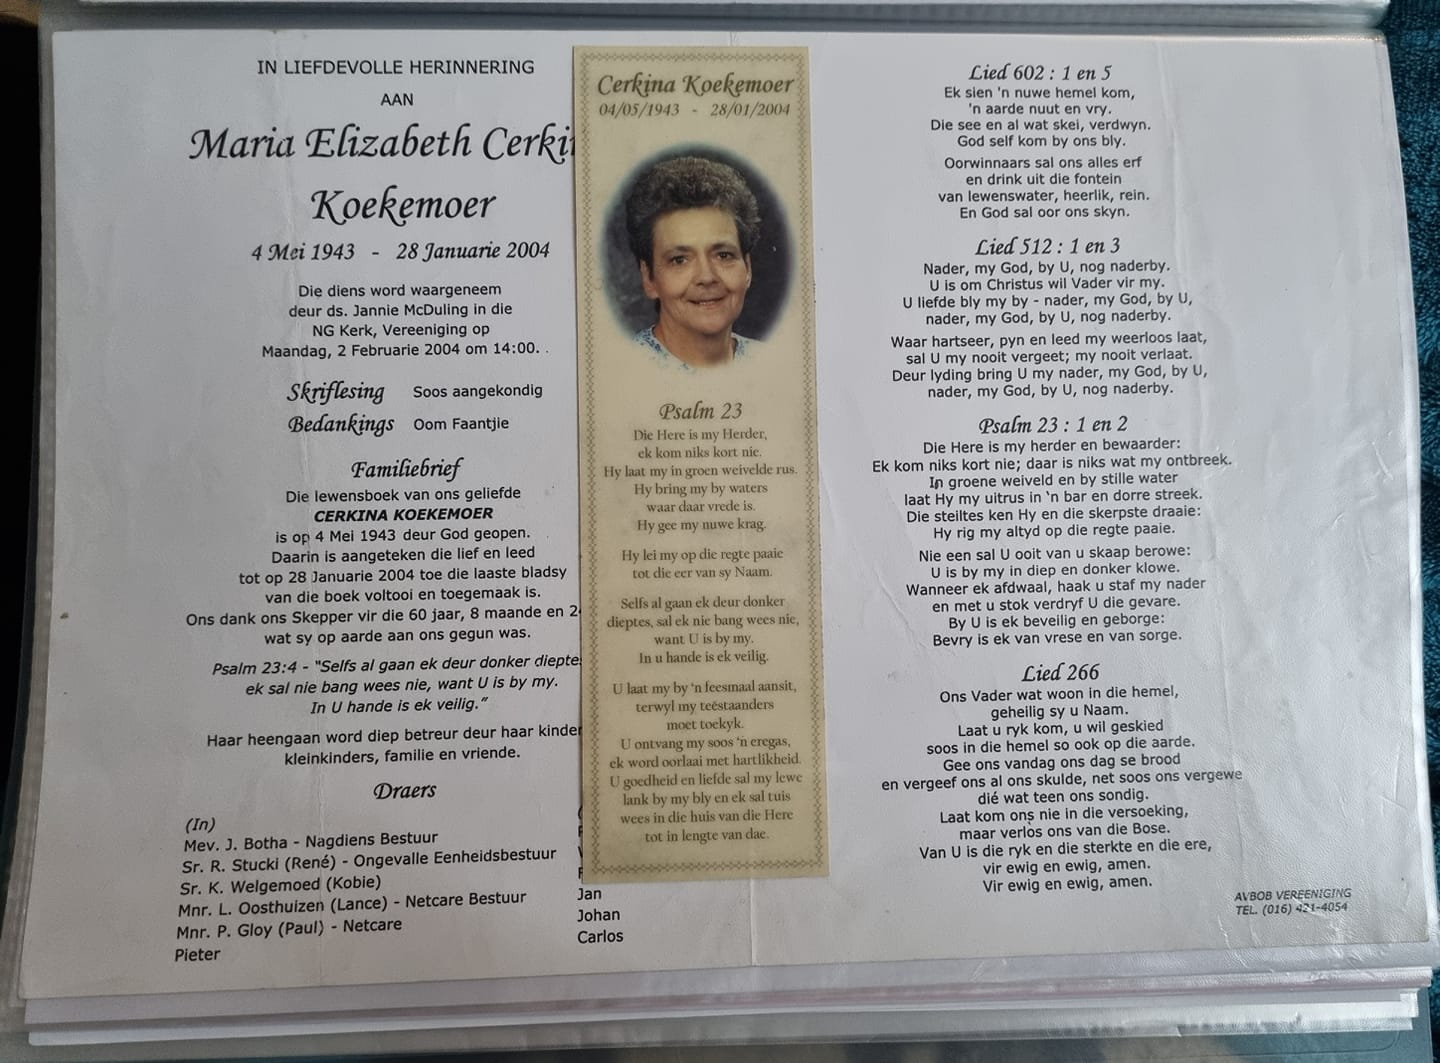 IN LIEFDEVOLLE HERINNERING
AAN
Maria Elizabeth
Koekemoer
4 Mei 1943 - 28 Januarie 2004
Die diens word waargeneem
deur ds. Jannie McDuling in die
NG Kerk, Vereeniging op
Maandag, 2 Februarie 2004 om 14:00. .
Skriflesing Soos aangekondig
Bedankings Oom Faantjie
Familiebrief
Die lewensboek van ons geliefde
CERKINA KOEKEMOER
is op 4 Mei 1943 deur God geopen.
Daarin is aangeteken die lief en leed
tot op 28 Januarie 2004 toe die laaste bladsy
van die boek voltooi en toegemaak is.
Ons dank ons Skepper vir die 60 jaar, 8 maande en
wat sy op aarde aan ons gegun was.
Psalm 23:4 - “Selfs al gaan ek deur donker
ek sal nie bang wees nie, want U is by my.
In U hande is ek veilig.”
Haar heengaan word diep betreur deur haar
kleinkinders, familie en vriende.
Draers
(In)
Mev. J. Botha - Nagdiens Bestuur
Sr. R. Stucki (René) - Ongevalle Eenheidsbestuur
Sr. K. Welgemoed (Kobie)
Mnr. L. Oosthuizen (Lance) - Netcare Bestuur
Mnr. P. Gloy (Paul) - Netcare
Pieter
Jan
Johan
Carlos
Cerkina Koekemoer
04/05/1943 - 28/01/2004
Psalm 23
Die Here is my Herder,
ek kom niks kort nie.
Hy laat my in groen weivelde rus.
Hy bring my by waters
waar daar vrede is.
Hy gee my nuwe krag.
Hy lei my op die regte paaie
tot die eer van sy Naam.
Selfs al gaan ek deur donker
dieptes, sal ek nie bang wees nie,
want U is by my.
In u hande is ek veilig.
U laat my by ‘n feesmaal aansit,
terwyl my teëstaanders
moet toekyk.
U ontvang my soos ‘n eregas,
ek word oorlaai met hartlikheid.
U goedheid en liefde sal my lewe
lank by my bly en ek sal tuis
wees in die huis van die Here
tot in lengte van dae.
Lied 602 : 1 en 5
Ek sien 'n nuwe hemel kom,
'n aarde nuut en vry.
Die see en al wat skei, verdwyn.
God self kom by ons bly.
Oorwinnaars sal ons alles erf
en drink uit die fontein
van lewenswater, heerlik, rein.
En God sal oor ons skyn.
Lied 512 : 1 en 3
Nader, my God, by U, nog naderby.
U is om Christus wil Vader vir my.
U liefde bly my by - nader, my God, by U,
nader, my God, by U, nog naderby.
Waar hartseer, pyn en leed my weerloos laat,
sal U my nooit vergeet; my nooit verlaat.
Deur lyding bring U my nader, my God, by U,
nader, my God, by U, nog naderby.
Psalm 23 : 1 en 2
Die Here is my herder en bewaarder:
Ek kom niks kort nie; daar is niks wat my ontbreek.
In groene weiveld en by stille water
laat Hy my uitrus in ‘n bar en dorre streek.
Die steiltes ken Hy en die skerpste draaie:
Hy rig my altyd op die regte paaie.
Nie een sal U ooit van u skaap berowe:
U is by my in diep en donker klowe.
Wanneer ek afdwaal, haak u staf my nader
en met u stok verdryf U die gevare.
By U is ek beveilig en geborge:
Bevry is ek van vrese en van sorge.
Lied 266
Ons Vader wat woon in die hemel,
geheilig sy u Naam.
Laat u ryk kom, u wil geskied
soos in die hemel so ook op die aarde.
Gee ons vandag ons dag se brood
en vergeef ons al ons skulde, net soos ons vergewe
dié wat teen ons sondig.
Laat kom ons nie in die versoeking,
maar verlos ons van die Bose.
Van U is die ryk en die sterkte en die ere,
vir ewig en ewig, amen.
Vir ewig en ewig, amen.
AVBOB VEREENIGING
TEL. (016) 421-4054